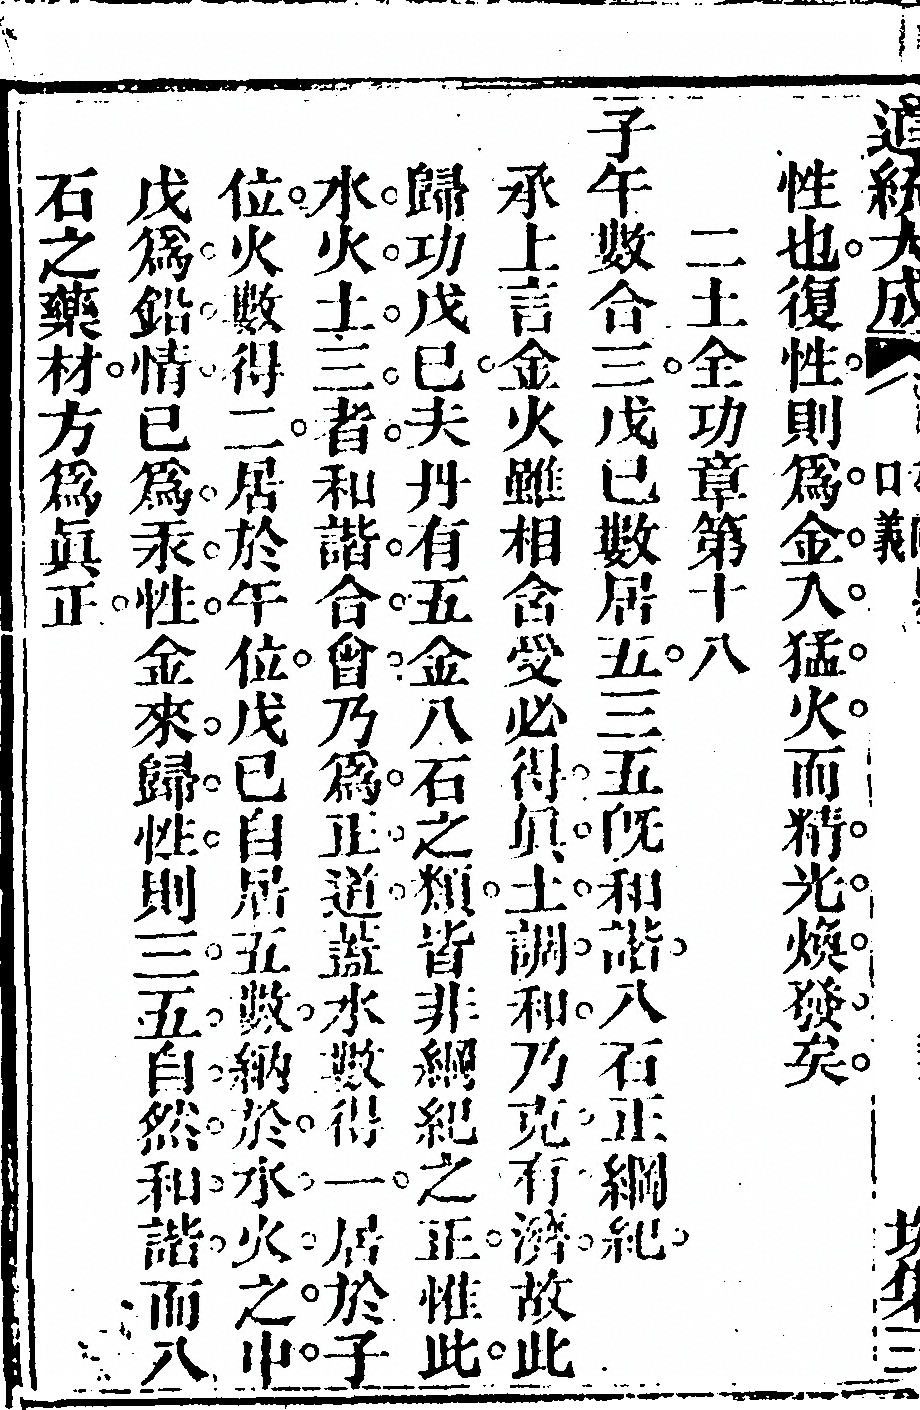 道統大成
口義
坎集三
性也。復性。則爲。金。入。猛。火。而精。光。煥。發。矣。
二土全功章第十八
子午數合三。戊巳數居五。三五旣和諧。八石正綱紀。
承上言金火雖相含受必得。眞。土。調。和。乃克。有。濟。故此
歸功戊巳。夫丹有五金八石之類。皆非綱紀之正。惟此。
水。火。土。三。者。和諧。合。會。乃爲。正。道。蓋水數得一。居於子
位。火數得二。居於午位。戊巳自居五數。納於。水。火。之。中。
戊爲。鉛。情。巳爲。汞。性。金來。歸。性。則三。五。自。然。和。諧。而八
石之藥材。方爲眞正。